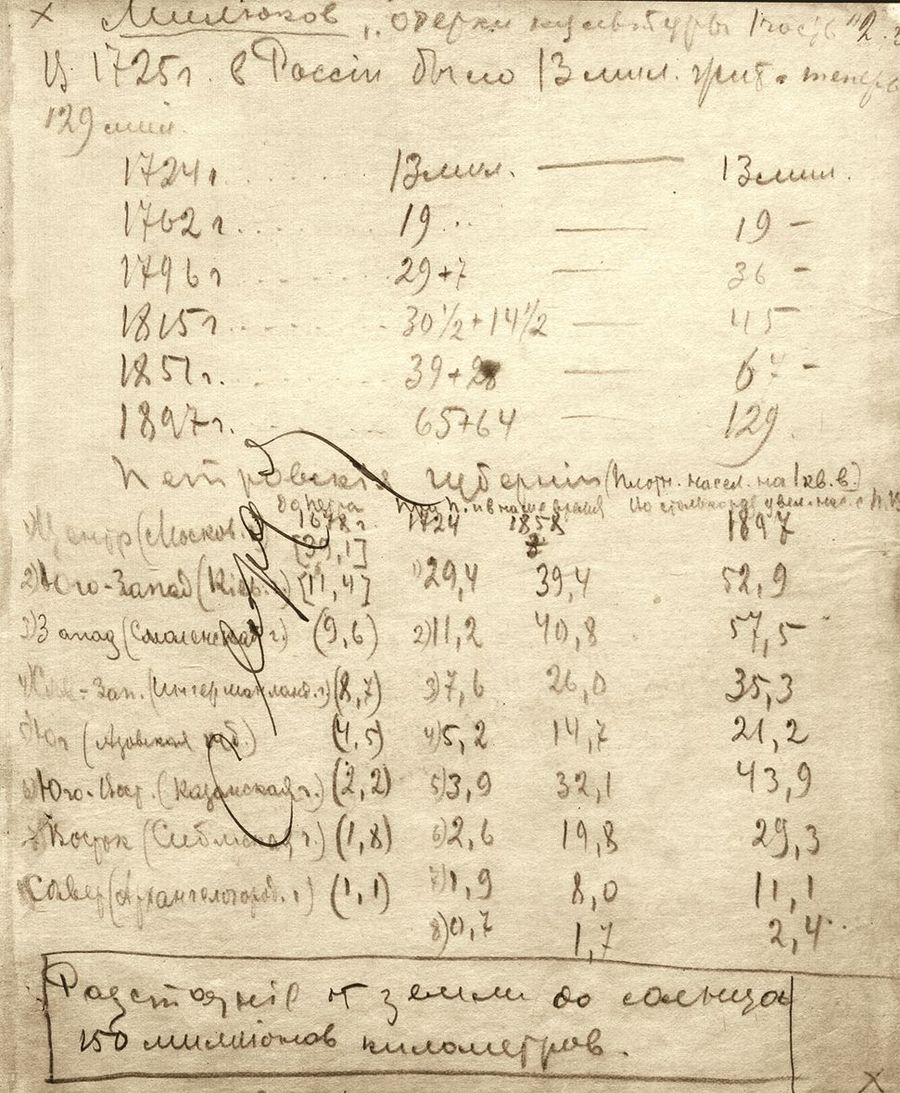 × Милюков „очерки культуры 1 часть"
Ц 1725г. в Россіи было 13 мил. жит. а теперь
129 мил.
1724г. 13 мил. — 13 мил.
1762г. 19 ... — 19 -
1796г 29+7 — 36 -
1815г. 30½+14½ — 45
1851г. 39+28 — 67 -
1897г. 65+64 — 129
Петровскія губерніи (Плотн. насел. на 1 кв. в.)
До Петра При П. и в наше время
1678г. 1724 1858 1897
1) Центр (Москов. [39,1]
2) Юго-Запад (Кіев. г.) [11,4] 1) 29,4 39,4 52,9
3) Запад (Смоленская г.) (9,6) 2) 11,2 40,8 57,5
4) Сев-Зап. (Ингерманланд. г.) (8,7) 3) 7,6 26,0 35,3
5) Юг (Азовская губ.) (4,5) 4) 5,2 14,7 21,2
6) Юго-Вост. (Казанская г.) (2,2) 5) 3,9 32,1 43,9
7) Восток (Сибирская г.) (1,8) 6) 2,6 19,8 29,3
Север (Архангелогород. г.) (1,1) 7) 1,9 8,0 11,1
8) 0,7 1,7 2,4
Разстояніе от земли до солнца
150 милліонов километров.
×